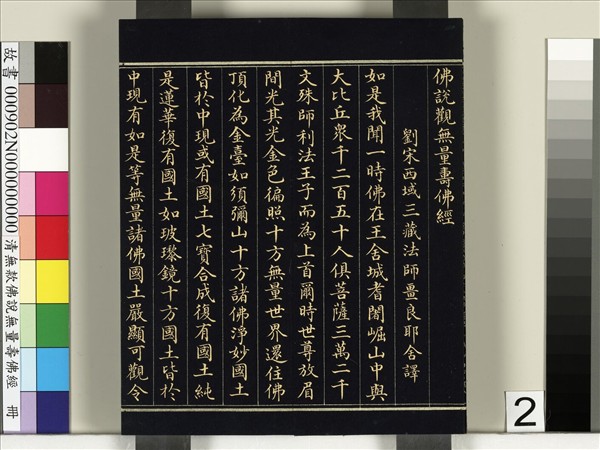 佛說觀無量壽佛經
劉宋西域三藏法師畺良耶舍譯
如是我聞一時佛在王舍城耆闍崛山中與
大比丘眾千二百五十人俱菩薩三萬二千
文殊師利法王子而為上首爾時世尊放眉
間光其光金色徧照十方無量世界還住佛
頂化為金臺如須彌山十方諸佛淨妙國土
皆於中現或有國土七寶合成復有國土純
是蓮華復有國土如玻瓈鏡十方國土皆於
中現有如是等無量諸佛國土嚴顯可觀令
故書 000902N000000000 清無款佛說無量壽佛經 冊
2